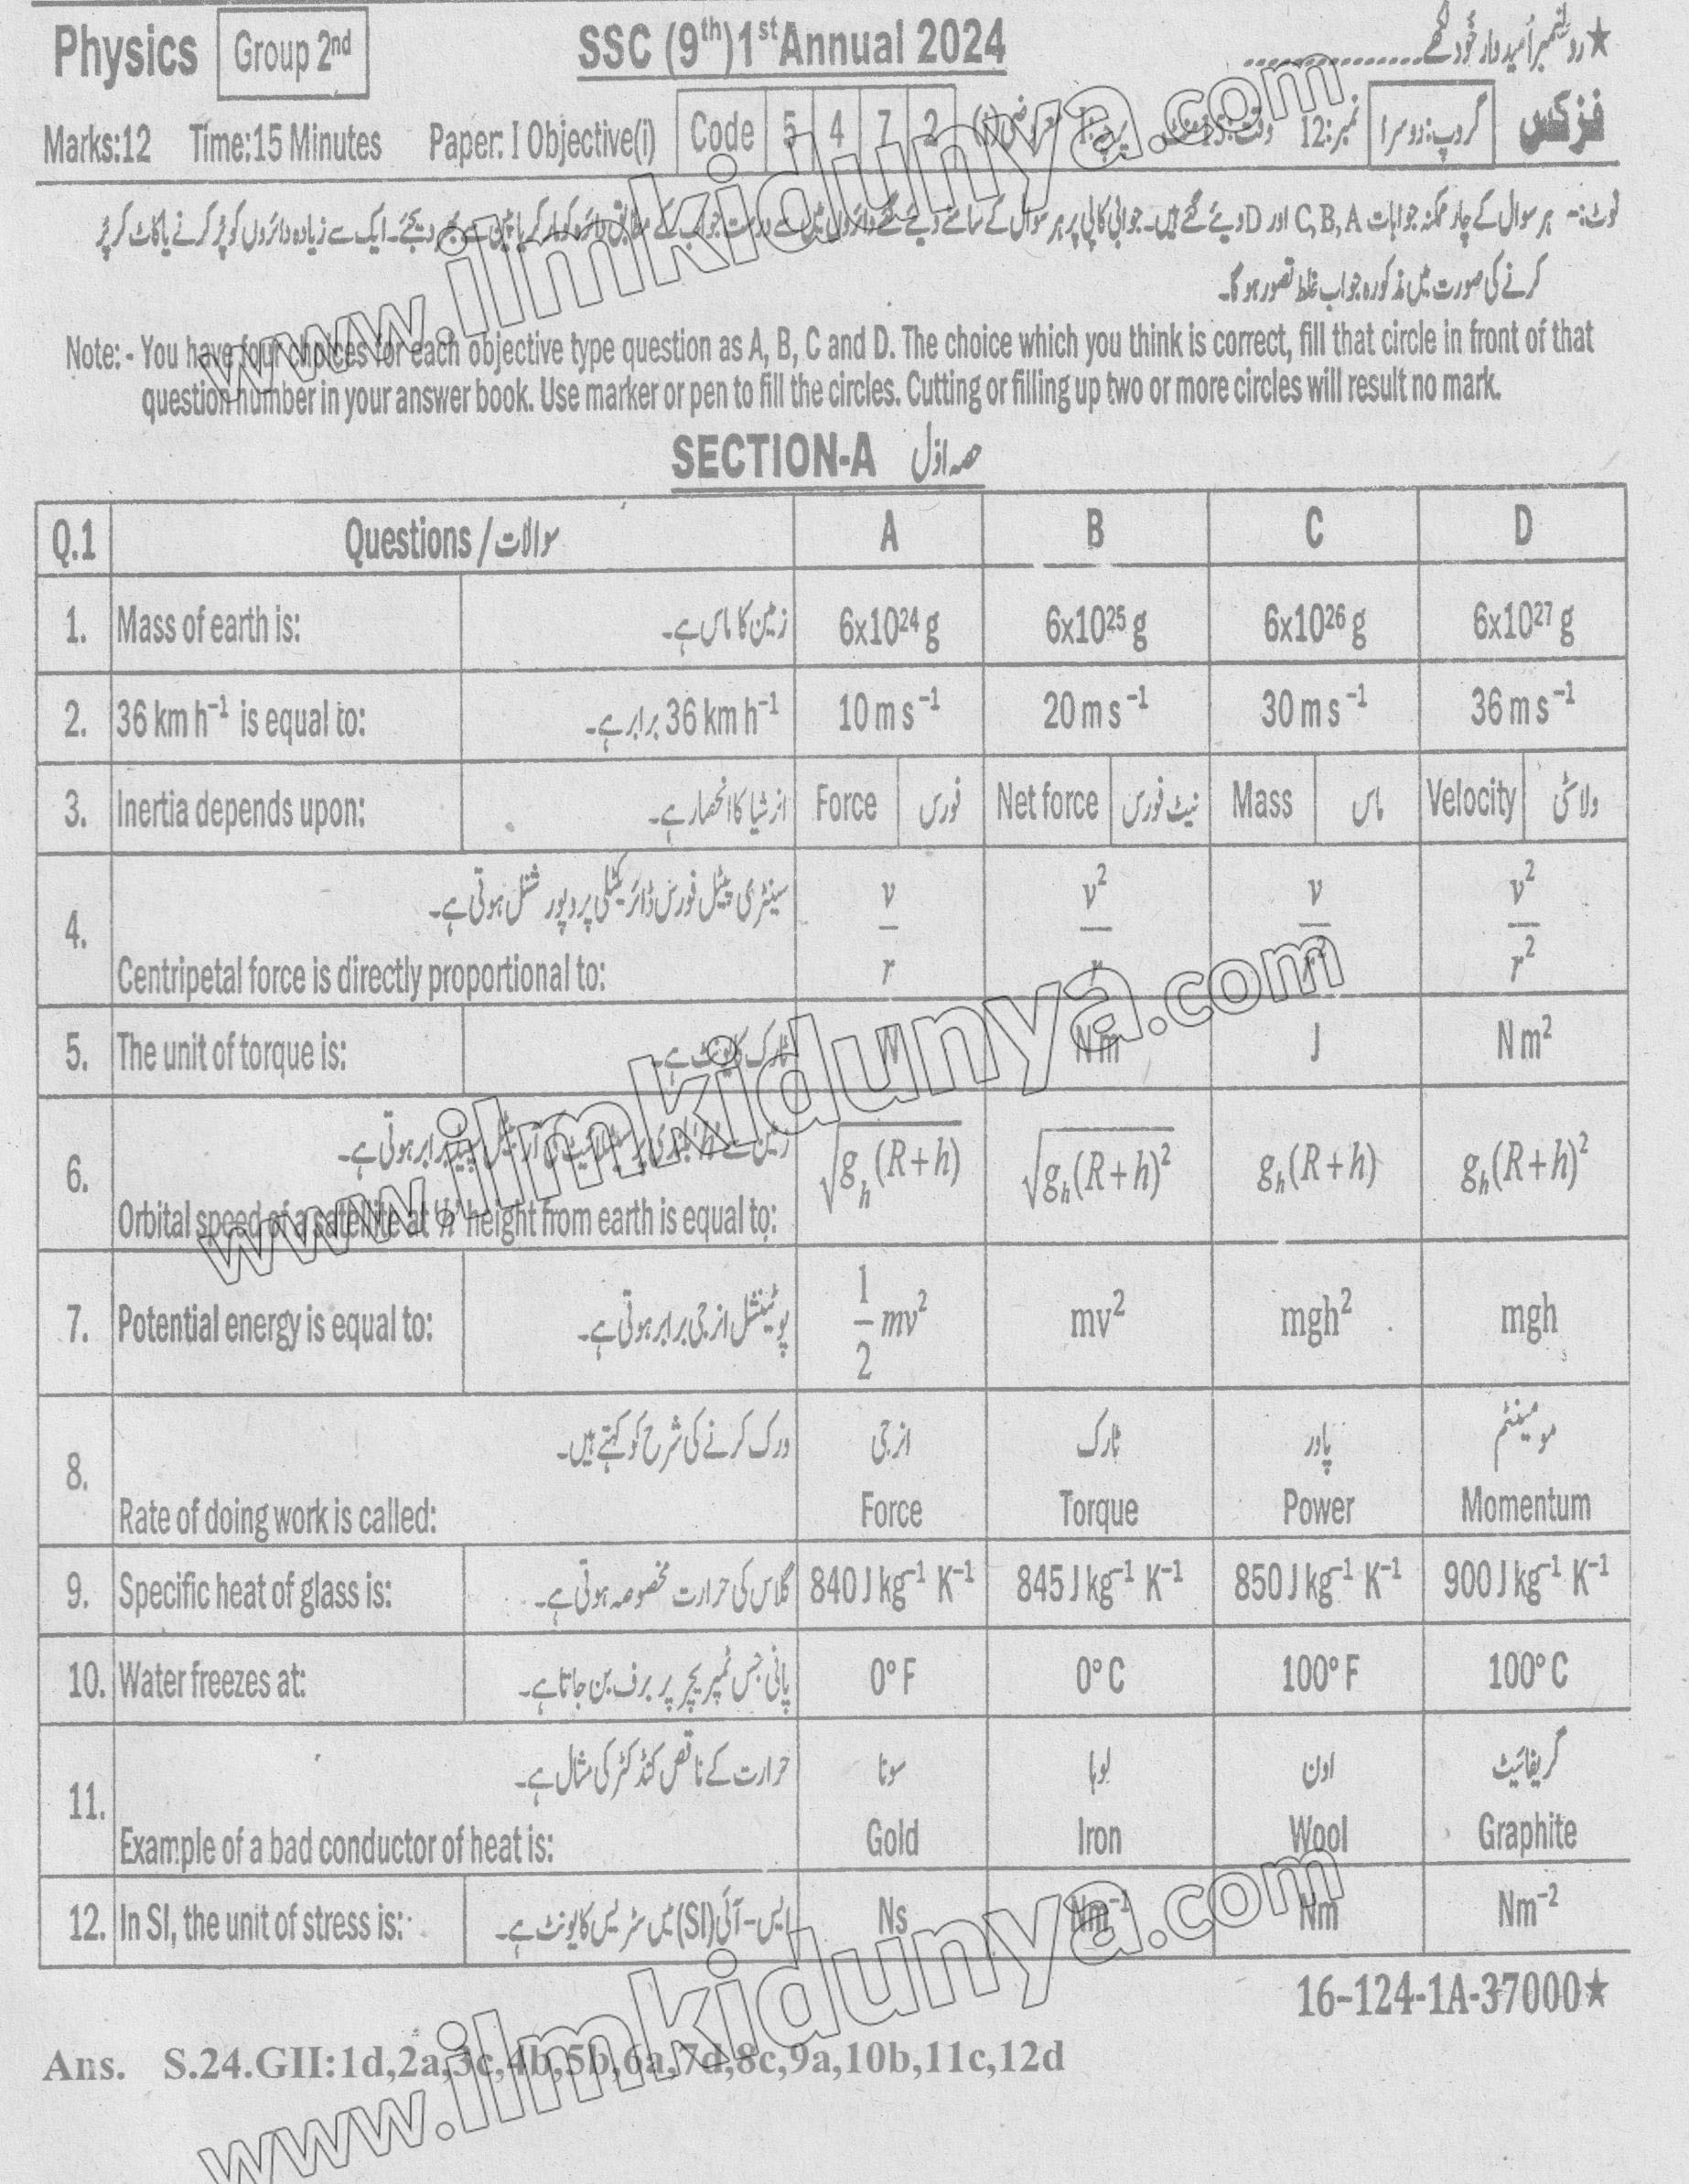 Physics Group 2nd SSC (9th)1st Annual 2024 ★رولنمبر اُمیدوار خُود لکھے
Marks:12 Time:15 Minutes Paper: I Objective(i) Code 5 4 7 2 نمبر:12 گروپ:دوسرا فزکس
نوٹ:- ہر سوال کے چار ممکنہ جوابات C,B,A اور D دیئے گئے ہیں۔ جوابی کاپی پر ہر سوال کے سامنے دیئے گئے دائروں میں سے درست جواب کے مطابق دائرہ کو مارکر یا پین سے بھر دیجئے۔ ایک سے زیادہ دائروں کو پُر کرنے یا کاٹ کر پُر
کرنے کی صورت میں مذکورہ جواب غلط تصور ہو گا۔
Note: - You have four choices for each objective type question as A, B, C and D. The choice which you think is correct, fill that circle in front of that
question number in your answer book. Use marker or pen to fill the circles. Cutting or filling up two or more circles will result no mark.
SECTION-A حصہ اوّل
Q.1 Questions / سوالات A B C D
1. Mass of earth is: زمین کا ماس ہے۔ 6x10²⁴ g 6x10²⁵ g 6x10²⁶ g 6x10²⁷ g
2. 36 km h⁻¹ is equal to: 36 km h⁻¹ برابر ہے۔ 10 m s⁻¹ 20 m s⁻¹ 30 m s⁻¹ 36 m s⁻¹
3. Inertia depends upon: انرشیا کا انحصار ہے۔ Force فورس Net force نیٹ فورس Mass ماس Velocity ولاسٹی
4. سینٹری پیٹل فورس ڈائریکٹلی پروپورشنل ہوتی ہے۔
Centripetal force is directly proportional to: v/r v²/r v/r² v²/r²
5. The unit of torque is: ٹارک کا یونٹ ہے۔ N Nm J N m²
6. زمین سے 'h' بلندی پر سیٹلائیٹ کی آربیٹل سپیڈ برابر ہوتی ہے۔
Orbital speed of a satellite at 'h' height from earth is equal to: √(gₕ(R+h)) √(gₕ(R+h)²) gₕ(R+h) gₕ(R+h)²
7. Potential energy is equal to: پوٹینشل انرجی برابر ہوتی ہے۔ 1/2 mv² mv² mgh² mgh
8. ورک کرنے کی شرح کو کہتے ہیں۔ انرجی ٹارک پاور مومینٹم
Rate of doing work is called: Force Torque Power Momentum
9. Specific heat of glass is: گلاس کی حرارت مخصوصہ ہوتی ہے۔ 840 J kg⁻¹ K⁻¹ 845 J kg⁻¹ K⁻¹ 850 J kg⁻¹ K⁻¹ 900 J kg⁻¹ K⁻¹
10. Water freezes at: پانی جس ٹمپریچر پر برف بن جاتا ہے۔ 0° F 0° C 100° F 100° C
11. حرارت کے ناقص کنڈکٹر کی مثال ہے۔ سونا لوہا اون گریفائیٹ
Example of a bad conductor of heat is: Gold Iron Wool Graphite
12. In SI, the unit of stress is: ایس-آئی(SI) میں سٹریس کا یونٹ ہے۔ Ns Nm⁻¹ Nm Nm⁻²
16-124-1A-37000★
Ans. S.24.GII:1d,2a,3c,4b,5b,6a,7d,8c,9a,10b,11c,12d
www.ilmkidunya.com
www.ilmkidunya.com
www.ilmkidunya.com